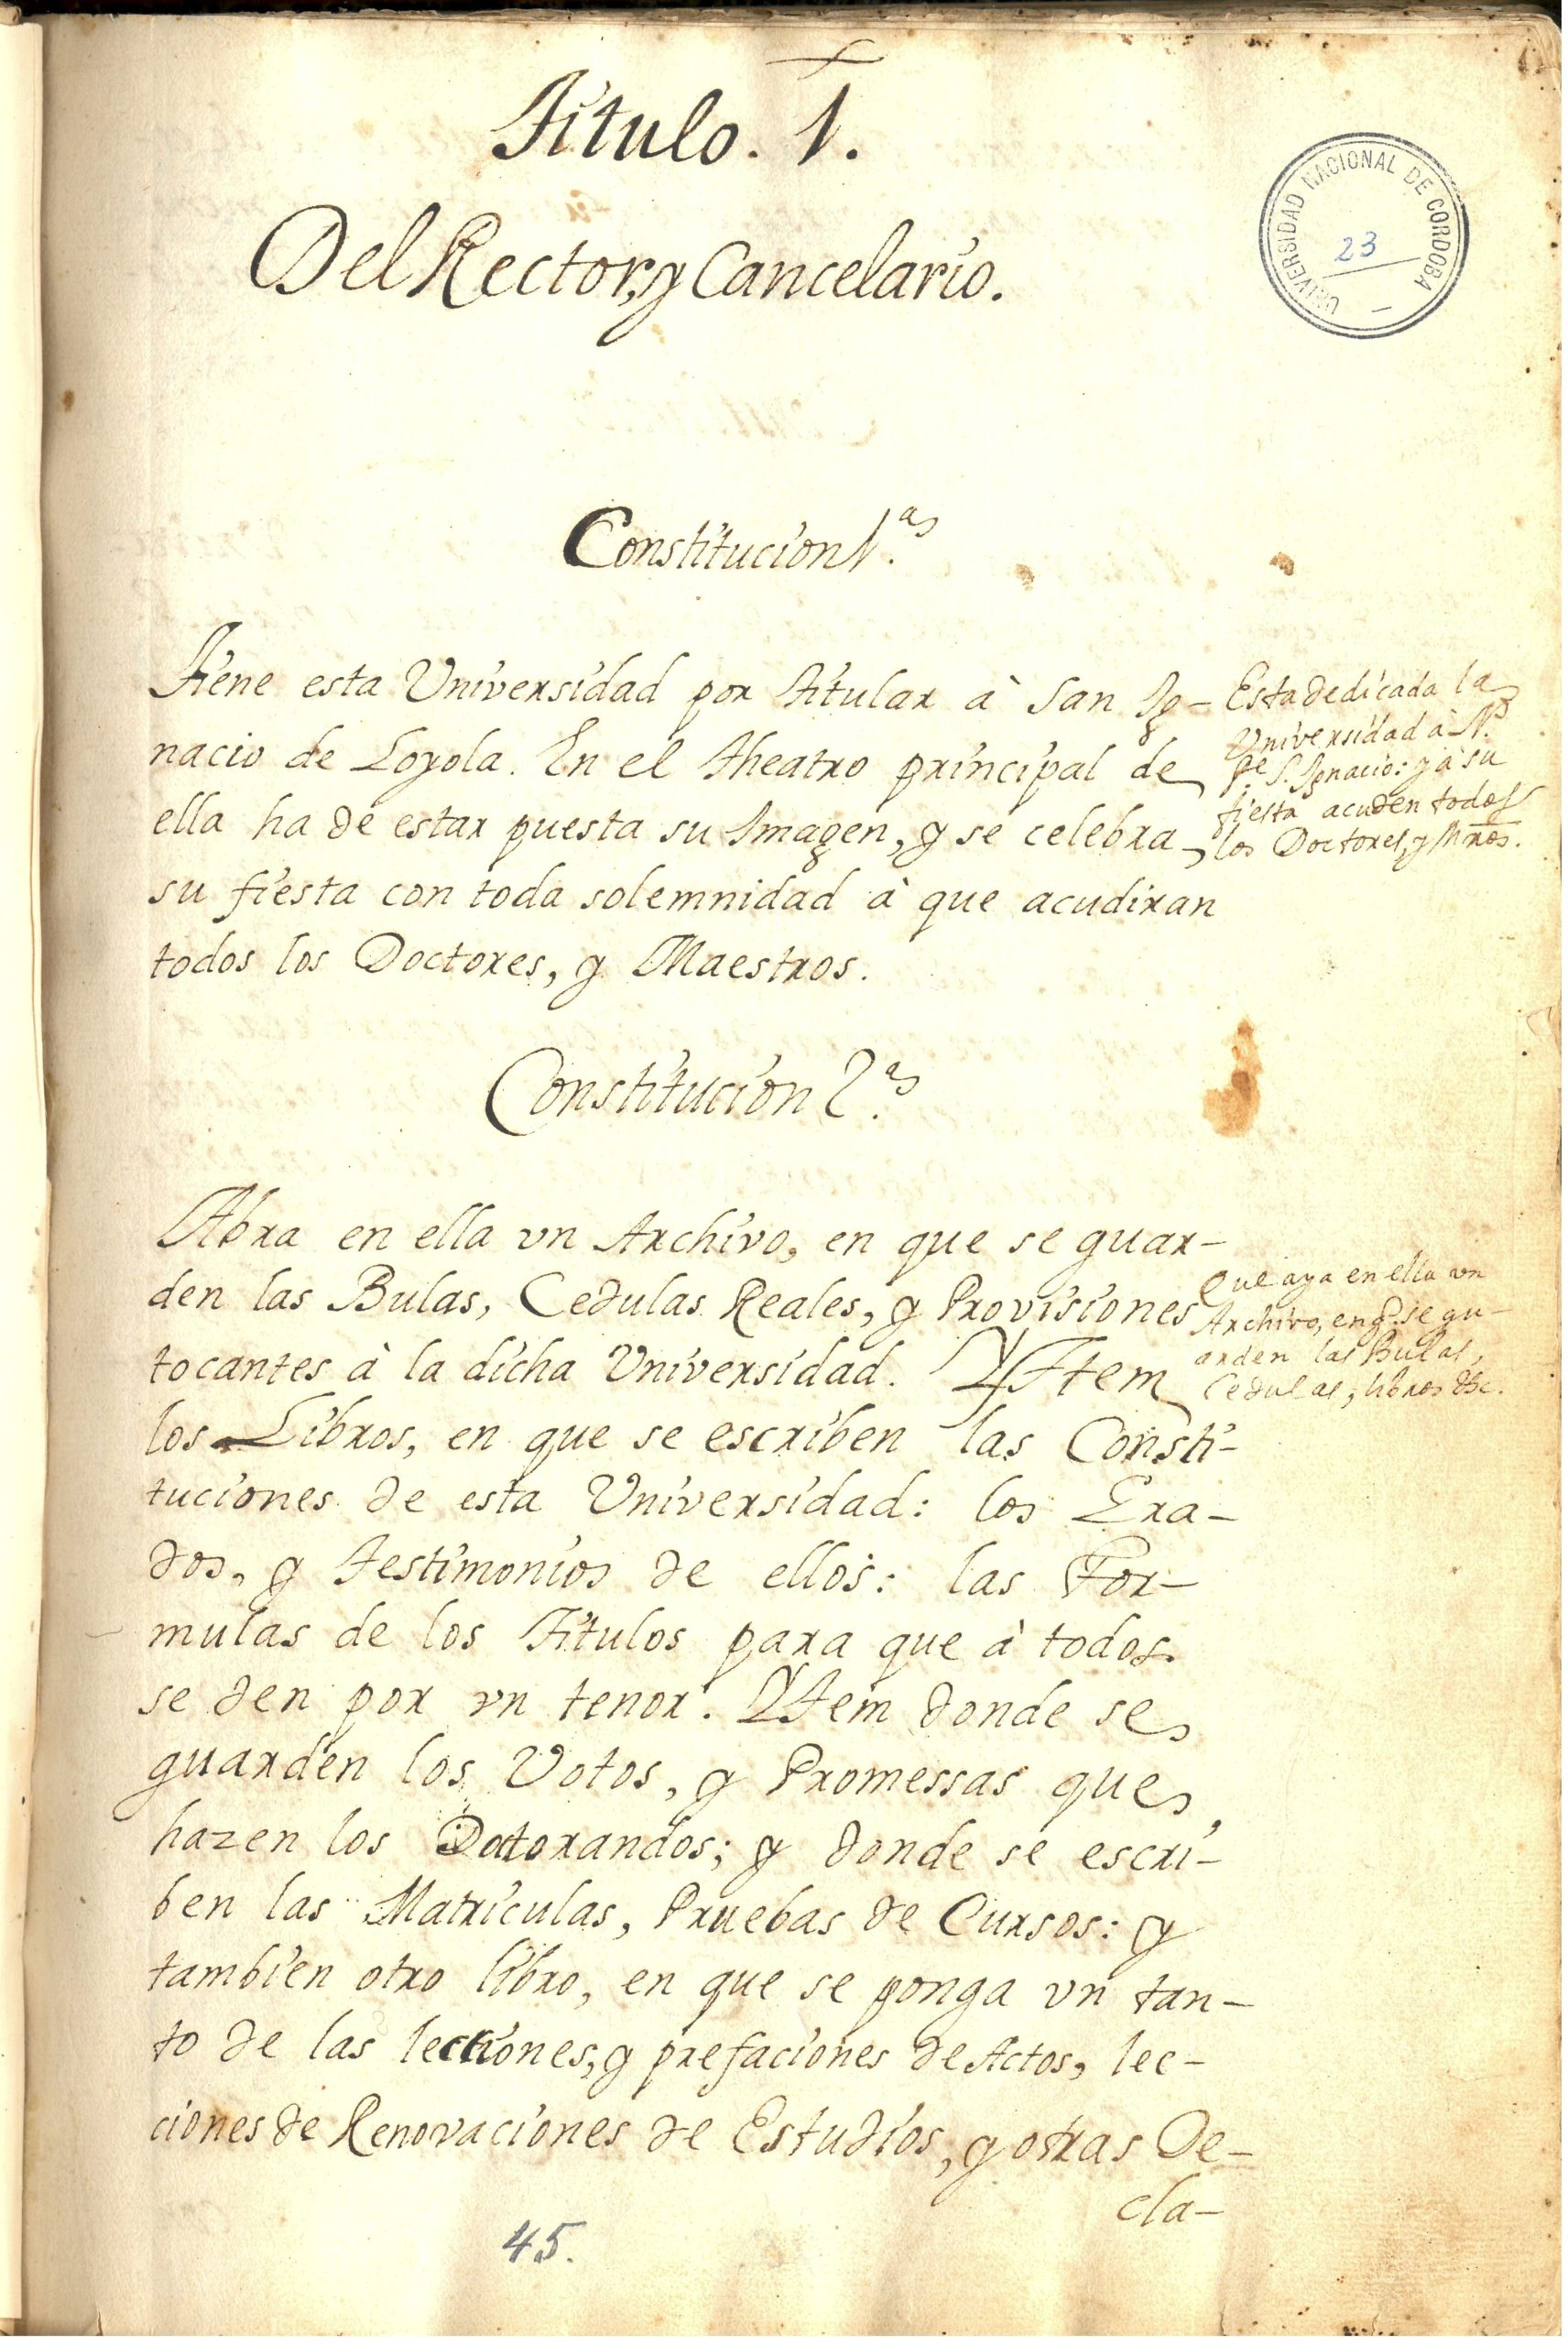 Titulo. 1.
Del Rector, y Cancelario.
UNIVERSIDAD NACIONAL DE CORDOBA
23
Constitucion 1.ª
Tiene esta Universidad por titular à San Ig-
nacio de Loyola. En el theatro principal de
ella ha de estar puesta su Imagen, y se celebra
su fiesta con toda solemnidad à que acudiran
todos los Doctores, y Maestros.
Esta dedicada la
Universidad à N.
P.e S. Ignacio: y à su
fiesta acuden todos
los Doctores, y Mr̃os.
Constitucion 2.ª
Abra en ella vn Archivo, en que se guar-
den las Bulas, Cedulas Reales, y Provisiones
tocantes à la dicha Universidad. YItem
los Libros, en que se escriben las Consti-
tuciones de esta Universidad: los Gra-
dos, y testimonios de ellos: las For-
mulas de los Titulos para que à todos
se den por vn tenor. YItem donde se
guarden los Votos, y Promessas que
hazen los Dotorandos; y donde se escri-
ben las Matriculas, Pruebas de Cursos: y
tambien otro libro, en que se ponga vn tan-
to de las lectiones, y prefaciones de Actos, lec-
ciones de Renovaciones de Estudios, y otras De-
cla-
Que aya en ella vn
Archivo, en q̃ se gu-
arden las Bulas,
Cedulas, libros &c.
45.